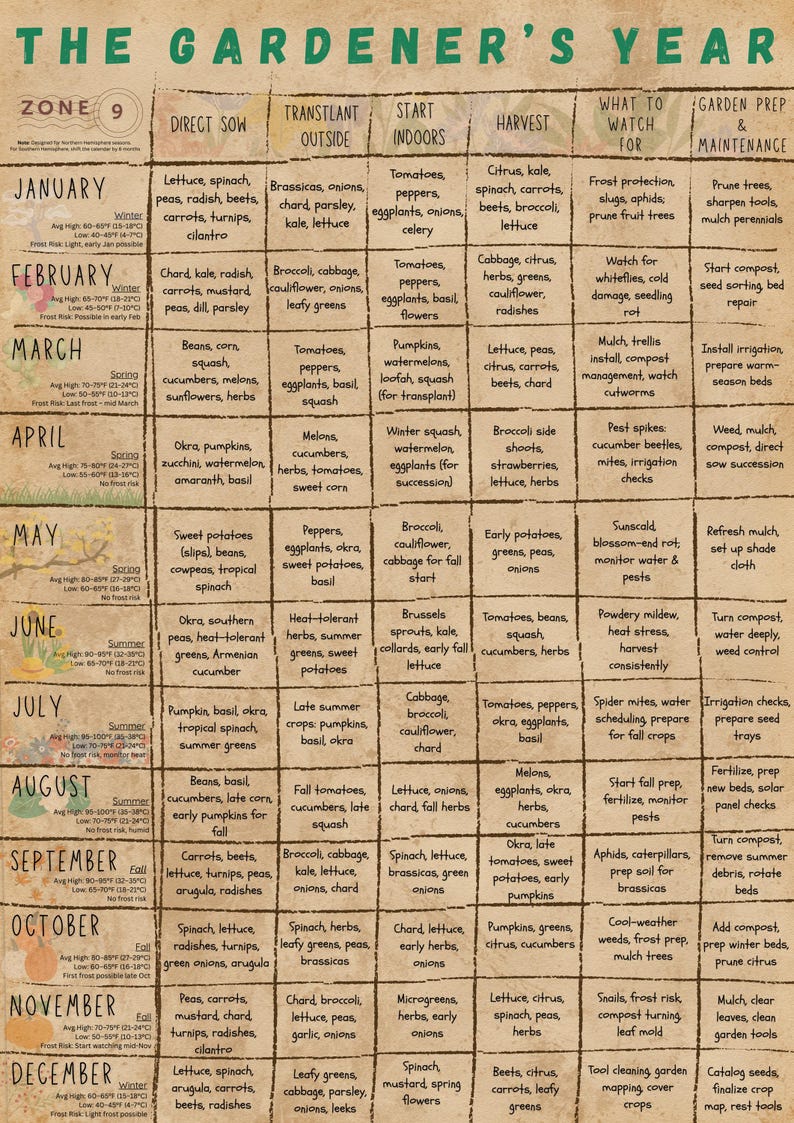 THE GARDENER'S YEAR
ZONE 9
Note: Designed for Northern Hemisphere seasons.
For Southern Hemisphere, shift the calendar by 6 months
DIRECT SOW
TRANSTLANT
OUTSIDE
START
INDOORS
HARVEST
WHAT TO
WATCH
FOR
GARDEN PREP
&
MAINTENANCE
JANUARY
Winter
Avg High: 60-65°F (15-18°C)
Low: 40-45°F (4-7°C)
Frost Risk: Light, early Jan possible
Lettuce, spinach,
peas, radish, beets,
carrots, turnips,
cilantro
Brassicas, onions,
chard, parsley,
kale, lettuce
Tomatoes,
peppers,
eggplants, onions,
celery
Citrus, kale,
spinach, carrots,
beets, broccoli,
lettuce
Frost protection,
slugs, aphids;
prune fruit trees
Prune trees,
sharpen tools,
mulch perennials
FEBRUARY
Winter
Avg High: 65-70°F (18-21°C)
Low: 45-50°F (7-10°C)
Frost Risk: Possible in early Feb
Chard, kale, radish,
carrots, mustard,
peas, dill, parsley
Broccoli, cabbage,
cauliflower, onions,
leafy greens
Tomatoes,
peppers,
eggplants, basil,
flowers
Cabbage, citrus,
herbs, greens,
cauliflower,
radishes
Watch for
whiteflies, cold
damage, seedling
rot
Start compost,
seed sorting, bed
repair
MARCH
Spring
Avg High: 70-75°F (21-24°C)
Low: 50-55°F (10-13°C)
Frost Risk: Last frost - mid March
Beans, corn,
squash,
cucumbers, melons,
sunflowers, herbs
Tomatoes,
peppers,
eggplants, basil,
squash
Pumpkins,
watermelons,
loofah, squash
(for transplant)
Lettuce, peas,
citrus, carrots,
beets, chard
Mulch, trellis
install, compost
management, watch
cutworms
Install irrigation,
prepare warm-
season beds
APRIL
Spring
Avg High: 75-80°F (24-27°C)
Low: 55-60°F (13-16°C)
No frost risk
Okra, pumpkins,
zucchini, watermelon,
amaranth, basil
Melons,
cucumbers,
herbs, tomatoes,
sweet corn
Winter squash,
watermelon,
eggplants (for
succession)
Broccoli side
shoots,
strawberries,
lettuce, herbs
Pest spikes:
cucumber beetles,
mites, irrigation
checks
Weed, mulch,
compost, direct
sow succession
MAY
Spring
Avg High: 80-85°F (27-29°C)
Low: 60-65°F (16-18°C)
No frost risk
Sweet potatoes
(slips), beans,
cowpeas, tropical
spinach
Peppers,
eggplants, okra,
sweet potatoes,
basil
Broccoli,
cauliflower,
cabbage for fall
start
Early potatoes,
greens, peas,
onions
Sunscald,
blossom-end rot;
monitor water &
pests
Refresh mulch,
set up shade
cloth
JUNE
Summer
Avg High: 90-95°F (32-35°C)
Low: 65-70°F (18-21°C)
No frost risk
Okra, southern
peas, heat-tolerant
greens, Armenian
cucumber
Heat-tolerant
herbs, summer
greens, sweet
potatoes
Brussels
sprouts, kale,
collards, early fall
lettuce
Tomatoes, beans,
squash,
cucumbers, herbs
Powdery mildew,
heat stress,
harvest
consistently
Turn compost,
water deeply,
weed control
JULY
Summer
Avg High: 95-100°F (35-38°C)
Low: 70-75°F (21-24°C)
No frost risk, monitor heat
Pumpkin, basil, okra,
tropical spinach,
summer greens
Late summer
crops: pumpkins,
basil, okra
Cabbage,
broccoli,
cauliflower,
chard
Tomatoes, peppers,
okra, eggplants,
basil
Spider mites, water
scheduling, prepare
for fall crops
Irrigation checks,
prepare seed
trays
AUGUST
Summer
Avg High: 95-100°F (35-38°C)
Low: 70-75°F (21-24°C)
No frost risk, humid
Beans, basil,
cucumbers, late corn,
early pumpkins for
fall
Fall tomatoes,
cucumbers, late
squash
Lettuce, onions,
chard, fall herbs
Melons,
eggplants, okra,
herbs,
cucumbers
Start fall prep,
fertilize, monitor
pests
Fertilize, prep
new beds, solar
panel checks
SEPTEMBER
Fall
Avg High: 90-95°F (32-35°C)
Low: 65-70°F (18-21°C)
No frost risk
Carrots, beets,
lettuce, turnips, peas,
arugula, radishes
Broccoli, cabbage,
kale, lettuce,
onions, chard
Spinach, lettuce,
brassicas, green
onions
Okra, late
tomatoes, sweet
potatoes, early
pumpkins
Aphids, caterpillars,
prep soil for
brassicas
Turn compost,
remove summer
debris, rotate
beds
OCTOBER
Fall
Avg High: 80-85°F (27-29°C)
Low: 60-65°F (16-18°C)
First frost possible late Oct
Spinach, lettuce,
radishes, turnips,
green onions, arugula
Spinach, herbs,
leafy greens, peas,
brassicas
Chard, lettuce,
early herbs,
onions
Pumpkins, greens,
citrus, cucumbers
Cool-weather
weeds, frost prep,
mulch trees
Add compost,
prep winter beds,
prune citrus
NOVEMBER
Fall
Avg High: 70-75°F (21-24°C)
Low: 50-55°F (10-13°C)
Frost Risk: Start watching mid-Nov
Peas, carrots,
mustard, chard,
turnips, radishes,
cilantro
Chard, broccoli,
lettuce, peas,
garlic, onions
Microgreens,
herbs, early
onions
Lettuce, citrus,
spinach, peas,
herbs
Snails, frost risk,
compost turning,
leaf mold
Mulch, clear
leaves, clean
garden tools
DECEMBER
Winter
Avg High: 60-65°F (15-18°C)
Low: 40-45°F (4-7°C)
Frost Risk: Light frost possible
Lettuce, spinach,
arugula, carrots,
beets, radishes
Leafy greens,
cabbage, parsley,
onions, leeks
Spinach,
mustard, spring
flowers
Beets, citrus,
carrots, leafy
greens
Tool cleaning, garden
mapping, cover
crops
Catalog seeds,
finalize crop
map, rest tools